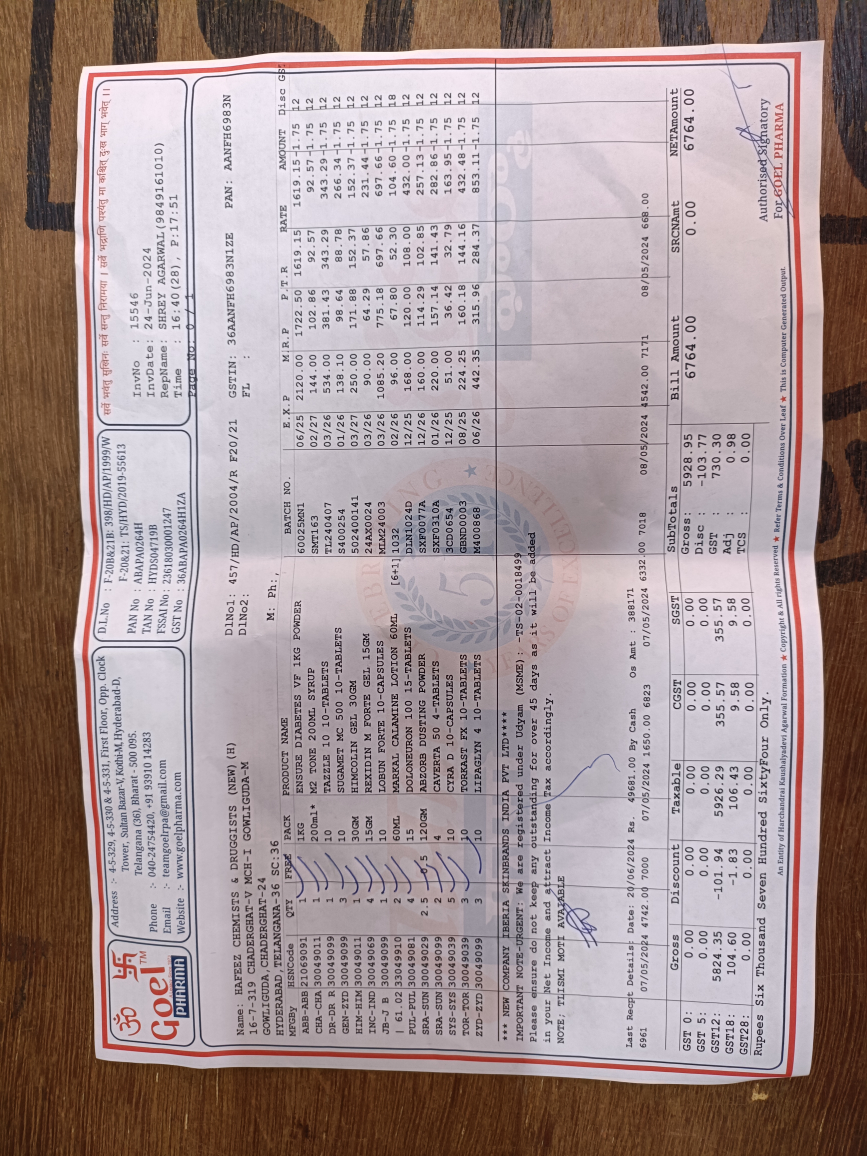 ॐ 卐
Goel™
PHARMA
Address :- 4-5-329, 4-5-330 & 4-5-331, First Floor, Opp. Clock
Tower, Sultan Bazar-V, Kothi-M, Hyderabad-D,
Telangana (36), Bharat - 500 095.
Phone :- 040-24754420, +91 93910 14283
Email :- teamgoelrpa@gmail.com
Website :- www.goelpharma.com
D.L.No : F-20B&21B: 398/HD/AP/1999/W
F-20&21: TS/HYD/2019-55613
PAN No : ABAPA0264H
TAN No : HYDS04719B
FSSAI No : 23618030001247
GST No : 36ABAPA0264H1ZA
सर्वे भवंतु सुखिनः सर्वे सन्तु निरामया । सर्वे भद्राणि पश्यंतु मा कश्चित् दुःख भाग् भवेत् ।।
InvNo : 15546
InvDate: 24-Jun-2024
RepName: SHREY AGARWAL(9849161010)
Time : 16:40(28), P:17:51
Page No: 0 / 1
Name: HAFEEZ CHEMISTS & DRUGGISTS (NEW) (H)
16-7-319 CHADERGHAT-V MCH-I GOWLIGUDA-M
GOWLIGUDA, CHADERGHAT-24
HYDERABAD,TELANGANA-36 SC:36
DlNo1: 457/HD/AP/2004/R F20/21 GSTIN: 36AANFH6983N1ZE PAN: AANFH6983N
DlNo2: FL :
M: Ph:,
MFGBy HSNCode QTY FREE PACK PRODUCT NAME BATCH NO. E.X.P M.R.P P.T.R RATE AMOUNT Disc GS
ABB-ABB 21069091 1 1KG ENSURE DIABETES VF 1KG POWDER 60025MN1 06/25 2120.00 1722.50 1619.15 1619.15 -1.75 12
CHA-CHA 30049011 1 200ml* M2 TONE 200ML SYRUP SMT163 02/27 144.00 102.86 92.57 92.57 -1.75 12
DR-DR R 30049099 1 10 TAZZLE 10 10-TABLETS TL240407 03/26 534.00 381.43 343.29 343.29 -1.75 12
GEN-ZYD 30049099 3 10 SUGAMET MC 500 10-TABLETS S400254 01/26 138.10 98.64 88.78 266.34 -1.75 12
HIM-HIM 30049011 1 30GM HIMCOLIN GEL 30GM 502400141 03/27 250.00 171.88 152.37 152.37 -1.75 12
INC-IND 30049069 4 15GM REXIDIN M FORTE GEL 15GM 24AX0024 03/26 90.00 64.29 57.86 231.44 -1.75 12
JB-J B 30049099 1 10 LOBUN FORTE 10-CAPSULES MLM24003 03/26 1085.20 775.18 697.66 697.66 -1.75 12
| 61.02 33049910 2 60ML MARKAL CALAMINE LOTION 60ML [6+1] 1032 02/26 96.00 67.80 52.30 104.60 -1.75 18
PUL-PUL 30049081 4 15 DOLONEURON 100 15-TABLETS DLN1024D 12/25 168.00 120.00 108.00 432.00 -1.75 12
SRA-SUN 30049029 2.5 0.5 120GM ABZORB DUSTING POWDER SXF0077A 12/26 160.00 114.29 102.85 257.13 -1.75 12
SRA-SUN 30049099 2 4 CAVERTA 50 4-TABLETS SXF0310A 01/26 220.00 157.14 141.43 282.86 -1.75 12
SYS-SYS 30049039 5 10 CYRA D 10-CAPSULES 3CD0654 12/25 51.00 36.42 32.79 163.95 -1.75 12
TOR-TOR 30049039 3 10 TORKAST FX 10-TABLETS GBND0003 08/25 224.25 160.18 144.16 432.48 -1.75 12
ZYD-ZYD 30049099 3 10 LIPAGLYN 4 10-TABLETS M400868 06/26 442.35 315.96 284.37 853.11 -1.75 12
*** NEW COMPANY IBERIA SKINBRANDS INDIA PVT LTD****
IMPORTANT NOTE-URGENT: We are registered under Udyam (MSME): -TS-02-0018499
Please ensure do not keep any outstanding for over 45 days as it will be added
in your Net Income and attract Income Tax accordingly.
NOTE; TIISMI MOTI AVAILABLE
Last Recpt Details: Date: 20/06/2024 Rs. 49681.00 By Cash Os Amt : 388171
6961 07/05/2024 4742.00 7000 07/05/2024 1650.00 6823 07/05/2024 6332.00 7018 08/05/2024 4542.00 7171 08/05/2024 668.00
Gross Discount Taxable CGST SGST SubTotals Bill Amount SRCNAmt NETAmount
GST 0: 0.00 0.00 0.00 0.00 0.00 Gross: 5928.95 6764.00 0.00 6764.00
GST 5: 0.00 0.00 0.00 0.00 0.00 Disc : -103.77
GST12: 5824.35 -101.94 5926.29 355.57 355.57 GST : 730.30
GST18: 104.60 -1.83 106.43 9.58 9.58 Adj : 0.98
GST28: 0.00 0.00 0.00 0.00 0.00 TCS : 0.00
Rupees Six Thousand Seven Hundred SixtyFour Only.
Authorised Signatory
For GOEL PHARMA
An Entity of Harchandrai Kaushalyadevi Agarwal Formation ★ Copyright & All rights Reserved ★ Refer Terms & Conditions Over Leaf ★ This is Computer Generated Output.